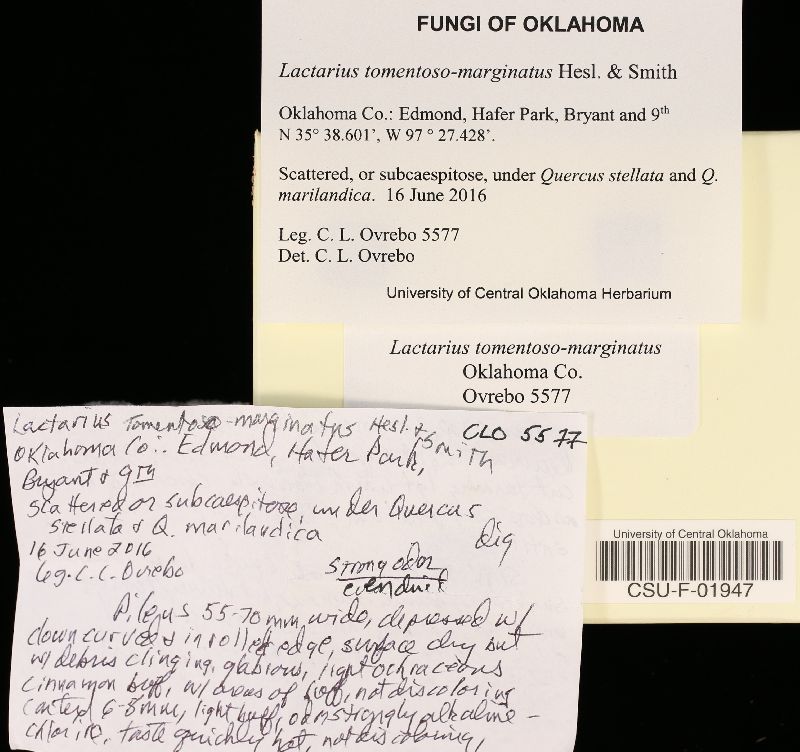 FUNGI OF OKLAHOMA
Lactarius tomentoso-marginatus Hesl. & Smith
Oklahoma Co.: Edmond, Hafer Park, Bryant and 9th
N 35° 38.601’, W 97 ° 27.428’.
Scattered, or subcaespitose, under Quercus stellata and Q.
marilandica. 16 June 2016
Leg. C. L. Ovrebo 5577
Det. C. L. Ovrebo
University of Central Oklahoma Herbarium
Lactarius tomentoso-marginatus
Oklahoma Co.
Ovrebo 5577
Lactarius tomentoso-marginatus Hesl. & Smith CLO 5577
Oklahoma Co.: Edmond, Hafer Park,
Bryant & 9th
Scattered or subcaespitose, under Quercus
stellata & Q. marilandica
16 June 2016 dig
Leg. C. L. Ovrebo strong odor
even dried
Pileus 55-70 mm wide, depressed w/
down curved & inrolled edge, surface dry but
w/ debris clinging, glabrous, light ochraceous
cinnamon buff, w/ areas of buff, not discoloring
Context 6-8mm, light buff, odor strongly alkaline -
chlorine, taste quickly hot, not discoloring,
University of Central Oklahoma
CSU-F-01947